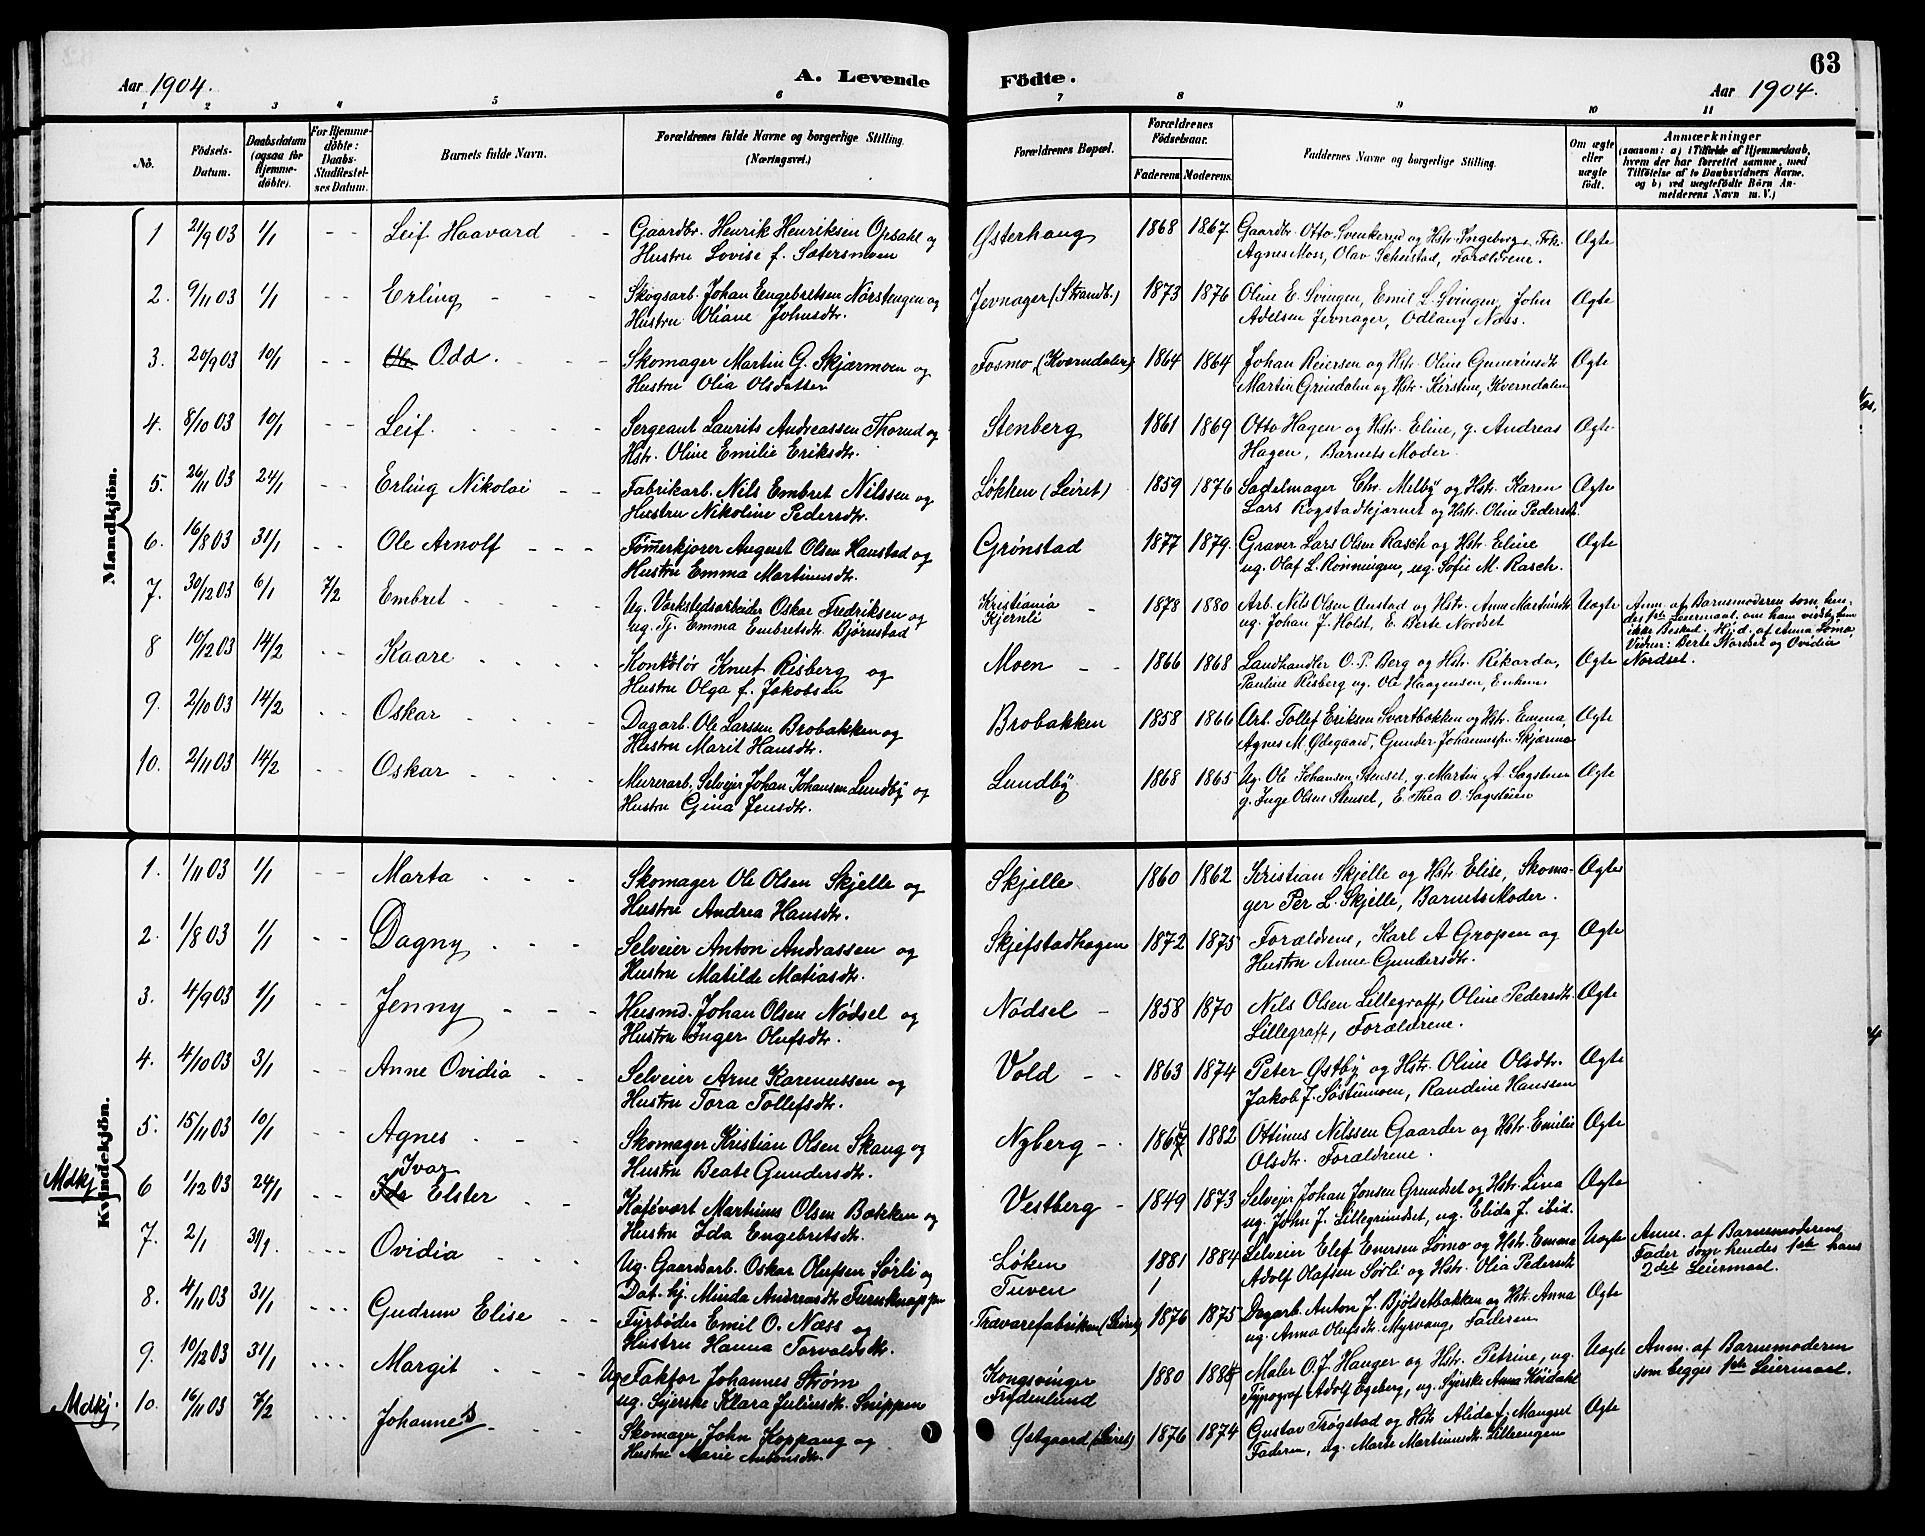 63
Aar 1904. A. Levende Födte. Aar 1904.
1 2 3 4 5 6 7 8 9 10 11
No. Födsels-Datum. Daabsdatum (ogsaa for Hjemmedöbte). For Hjemmedöbte: Daabs-Stadfæstelses Datum. Barnets fulde Navn. Forældrenes fulde Navne og borgerlige Stilling. (Næringsvei.) Forældrenes Bopæl. Forældrenes Födselsaar. Faderens Moderens. Faddernes Navne og borgerlige Stilling. Om ægte eller uægte födt. Anmærkninger (saasom: a) i Tilfælde af Hjemmedaab, hvem der har forrettet samme, med Tilföielse af to Daabsvidners Navne, og b) ved uægtefödte Börn Anmelderens Navn m. V.)
Mandkjön.
1 21/9 03 1/1 - - Leif Haavard - - Gaardbr. Henrik Henriksen Opsahl og Østerhaug 1868 1867 Gaardbr. Otto Svenkerud og Hstr. Ingeborg, Frk. Ægte
Hustru Lovise f. Sætersmoen Agnes Moss, Olav Scheistad, Forældrene.
2. 9/11 03 1/1 - - Erling - - - Skogsarb. Johan Engebretsen Norstengen og Jevnager (Strandb.) 1873 1876 Oline E. Svingen, Emil L. Svingen, John Ægte
Hustru Oliane Johnsdtr. Adelsen Jevnager, Odlaug Næss.
3. 20/9 03 10/1 - - Odd. - - - Skomager Martin G. Skjærmoen og Fosmo (Kværndalen) 1864 1864 Johan Reiersen og Hstr. Oline Guneriusdtr. Ægte
Hustru Olia Olsdatter Martin Grindalen og Hstr. Kirstine, Kverndalen
4. 8/10 03 10/1 - - Leif. - - - Sergeant Laurits Andreassen Thorud og Stenberg 1861 1869 Otto Hagen og Hstr. Eline, g. Andreas Ægte
Hstr. Oline Emilie Eriksdtr. Hagen, Barnets Moder.
5. 26/11 03 24/1 - - Erling Nikolai - - Fabrikarb. Nils Embret Nilssen og Løkken (Leiret) 1859 1876 Sadelmager Chr. Melby og Hstr. Karen Ægte
Hustru Nikoline Pedersdtr. Lars Rogstadkjærnet og Hstr. Oline Pedersdtr.
6. 16/8 03 31/1 - - Ole Arnolf - - - Tømmerkjører August Olsen Hanstad og Grønstad 1877 1879. Graver Lars Olsen Rasch og Hstr. Eline Ægte
Hustru Emma Martinusdtr. ug. Olaf L. Rønningen, ug. Sofie M. Rasch.
7. 30/12 03 6/1 7/2 Embret - - - - Ug. Værkstedsarbeider Oskar Fredriksen og Kristiania - 1878 1880 Arb. Nils Olsen Anstad og Hstr. Anne Martinsdtr. Uægte Anm. af Barnemoderen som hen-
ug. Tj. Emma Embretsdtr. Bjørnstad Kjernli ug. Johan J. Holst, E. Berte Nordset des 1ste Leiermaal, om ham vidste hun
ikke Besked. Hjd. af Anna Lømo,
Vidner: Berte Nordset og Ovidia
Nordset.
8 10/12 03 14/2 - - Kaare - - - - Kontrolør Knut Risberg og Moen - - 1866 1868 Landhandler O. P. Berg og Hstr. Rikarda, Ægte
Hustru Olga f. Jakobsen Pauline Risberg ug. Ole Haagensen, Enkem.
9. 2/10 03 14/2 - - Oskar - - - - Dagarb. Ole Larssen Brobakken og Brobakken 1858 1866 Arb. Tollef Eriksen Svartbækken og Hstr. Emma, Ægte
Hustru Marit Hansdtr. Agnes M. Ødegaard, Gunder Johannesen Skjærmo
10. 2/11 03 14/2 - - Oskar - - - - Murerarb. Selvejer Johan Johansen Lundby og Lundby 1868 1865 Ug. Ole Johansen Stenset, g. Martin A. Sagstuen Ægte
Hustru Gina Jensdtr. g. Inge Olsen Stenset, E. Thea O. Sagstuen
Kvindekjön.
1. 1/11 03 1/1 - - Marta - - - Skomager Ole Olsen Skjelle og Skjelle 1860 1862 Kristian Skjelle og Hstr. Elise, Skoma- Ægte
Hustru Andrea Hansdtr. ger Per L. Skjelle, Barnets Moder.
2. 1/8 03 1/1 - - Dagny - - - Selveier Anton Andrassen og Skjefstadhagen 1872 1875 Forældrene, Karl A Gropen og Ægte
Hustru Matilde Matiasdtr. Hustru Anne Gundersdtr.
3. 4/9 03 1/1 - - Jenny - - - Husmd. Johan Olsen Nødsel og Nødsel - 1858 1870 Nils Olsen Lillegraff, Oline Pedersdtr. Ægte
Hustru Inger Olufsdtr. Lillegraff, Forældrene.
4. 4/10 03 3/1 - - Anne Ovidia - - Selveier Arne Karenussen og Vold - - 1863 1874 Peter Østby og Hstr. Oline Olsdtr. Ægte
Hustru Tora Tollefsdtr. Jakob J. Søstumoen, Randine Hanssen
5. 15/11 03 10/1 - - Agnes - - Skomager Kristian Olsen Skaug og Nyberg - - 1867 1882 Ottinus Nilssen Gaarder og Hstr. Emilie Ægte
Hustru Beate Gundersdtr. Olsdtr. Forældrene.
Mdkj 6 1/12 03 24/1 - - Ida Ivar Elster - - Kafévært Martinus Olsen Bækken og Vestberg - 1849 1873 Selvejer Johan Jonsen Grundset og Hstr. Lina Ægte
Hustru Ida Engebretsdtr. ug. John J. Lillegrundset, ug. Elida J. ibid.
7. 2/1 31/1. - - - Ovidia - - - Ug. Gaardsarb. Oskar Olufsen Sørli og Løken 1881 1884 Selveier Elef Evensen Lømo og Hstr. Emma Uægte Anm. af Barnemoderens
Dat. hj. Minda Andreasdtr. Turnknappen Tuven Adolf Olafsen Sørli og Hstr. Olia Pedersdtr. Fader som hendes 1ste hans
2det Leiermaal.
8. 4/11 03 31/1 - - - Gudrun Elise - - Fyrbøder Emil O. Næss og Trævarefabriken (Leiret) 1876 1875 Dagarb. Anton J. Bjølsetbakken og Hstr. Anna Ægte
Hustru Hanna Torvaldsdtr. ug. Anna Olufsdtr. Myrvang, Faderen
9. 10/12 03 31/1 - - - Margit - - - Ug. Faktor Johannes Strøm Kongsvinger 1880 1884 Maler O. J. Hanger og Hstr. Petrine, ug. Uægte Anm. af Barnemoderen
ug. Syerske Klara Juliusdtr. Snippen Frydenlund Typograf Adolf Egeberg, ug. Syerske Anna Koisdahl som begges 1ste Leiermaal.
Mdkj. 10. 16/11 03 7/2 - - - Johannes - - Skomager John Koppang og Østgaard (Leiret) 1876 1874 Gustav Trøgstad og Hstr. Alida f. Mangset Ægte
Hustru Marie Antonsdtr. Faderen, ug. Marte Martinusdtr. Lilleengen